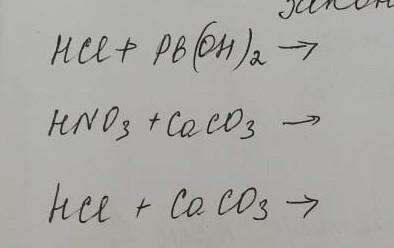 HCl + PB(OH)2 →
HNO3 + CaCO3 →
HCl + CaCO3 →